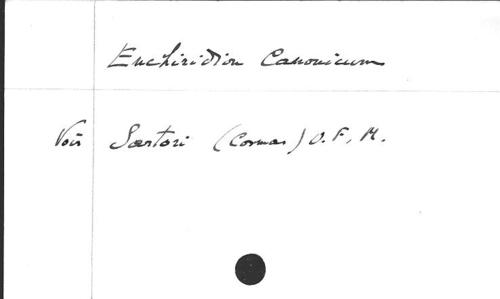 Enchiridion Canonicum
Voir Sartori (Cosmas) O.F.M.